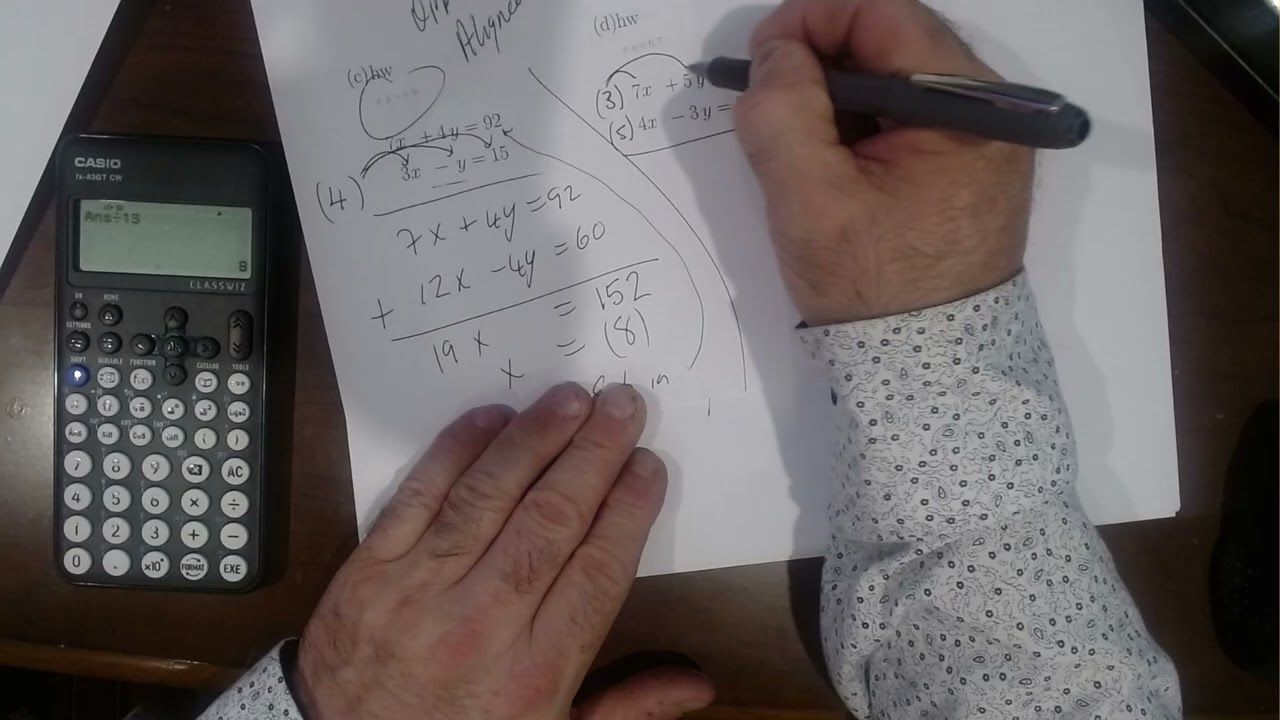 Aligned
(c)hw
7x + 4y = 92
(4) 3x - y = 15
7x + 4y = 92
+ 12x - 4y = 60
19x = 152
x = (8)
(d)hw
(3) 7x + 5y
(5) 4x - 3y =
CASIO
fx-83GT CW
Ans÷19
8
CLASSWIZ
ON HOME
SETTINGS
OK
SHIFT VARIABLE FUNCTION CATALOG TOOLS
f(x)
Ans sin cos tan ( )
7 8 9 AC
4 5 6 × ÷
1 2 3 + −
0 . ×10 FORMAT EXE